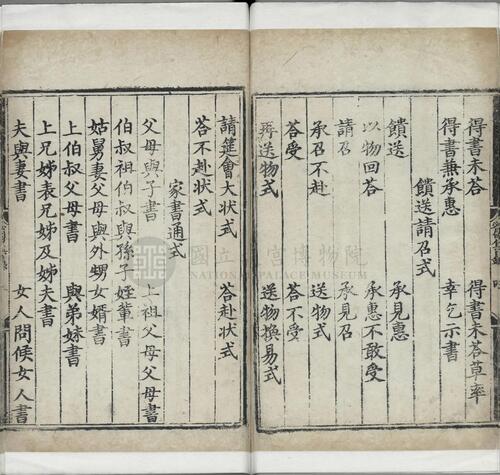 得書未荅　得書未荅草率
得書兼承惠　幸乞示書
饋送請召式
饋送　承見惠
以物回荅　承惠不敢受
請召　承見召
承召不赴　送物式
荅受　荅不受
再送物式　送物換易式
請筵會大狀式　荅赴狀式
荅不赴狀式
家書通式
父母與子書　上祖父母父母書
伯叔祖伯叔與孫子姪輩書
姑舅妻父母與外甥女婿書
上伯叔父母書　與弟妹書
上兄姊表兄姊及姊夫書
夫與妻書　女人問候女人書
國立　宮博物院
NATIONAL PALACE MUSEUM